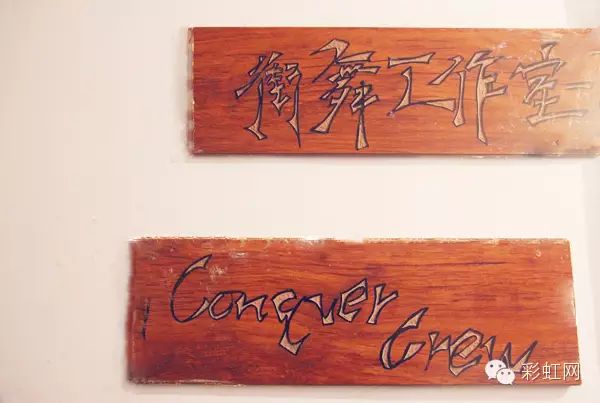 街舞工作室
Conquer
Crew
彩虹网